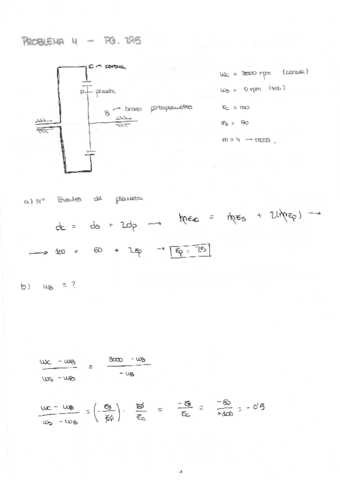 PROBLEMA 4 - PG. 295
C → corona
P → planeta
B → brazo portaplanetas
ωc = 3000 rpm (corona)
ωs = 0 rpm (sol)
Zc = 100
Zs = 50
m = 4
a) Nº Dientes del planeta
dc = ds + 2dp → mZc = mZs + 2(mZp) →
→ 100 = 50 + 2Zp → Zp = 25
b) ωB = ?
ωc - ωB / ωs - ωB = 3000 - ωB / -ωB
ωc - ωB / ωs - ωB = (- Zs / Zp) · Zp / Zc = -Zs / Zc = -50 / +100 = -0'5